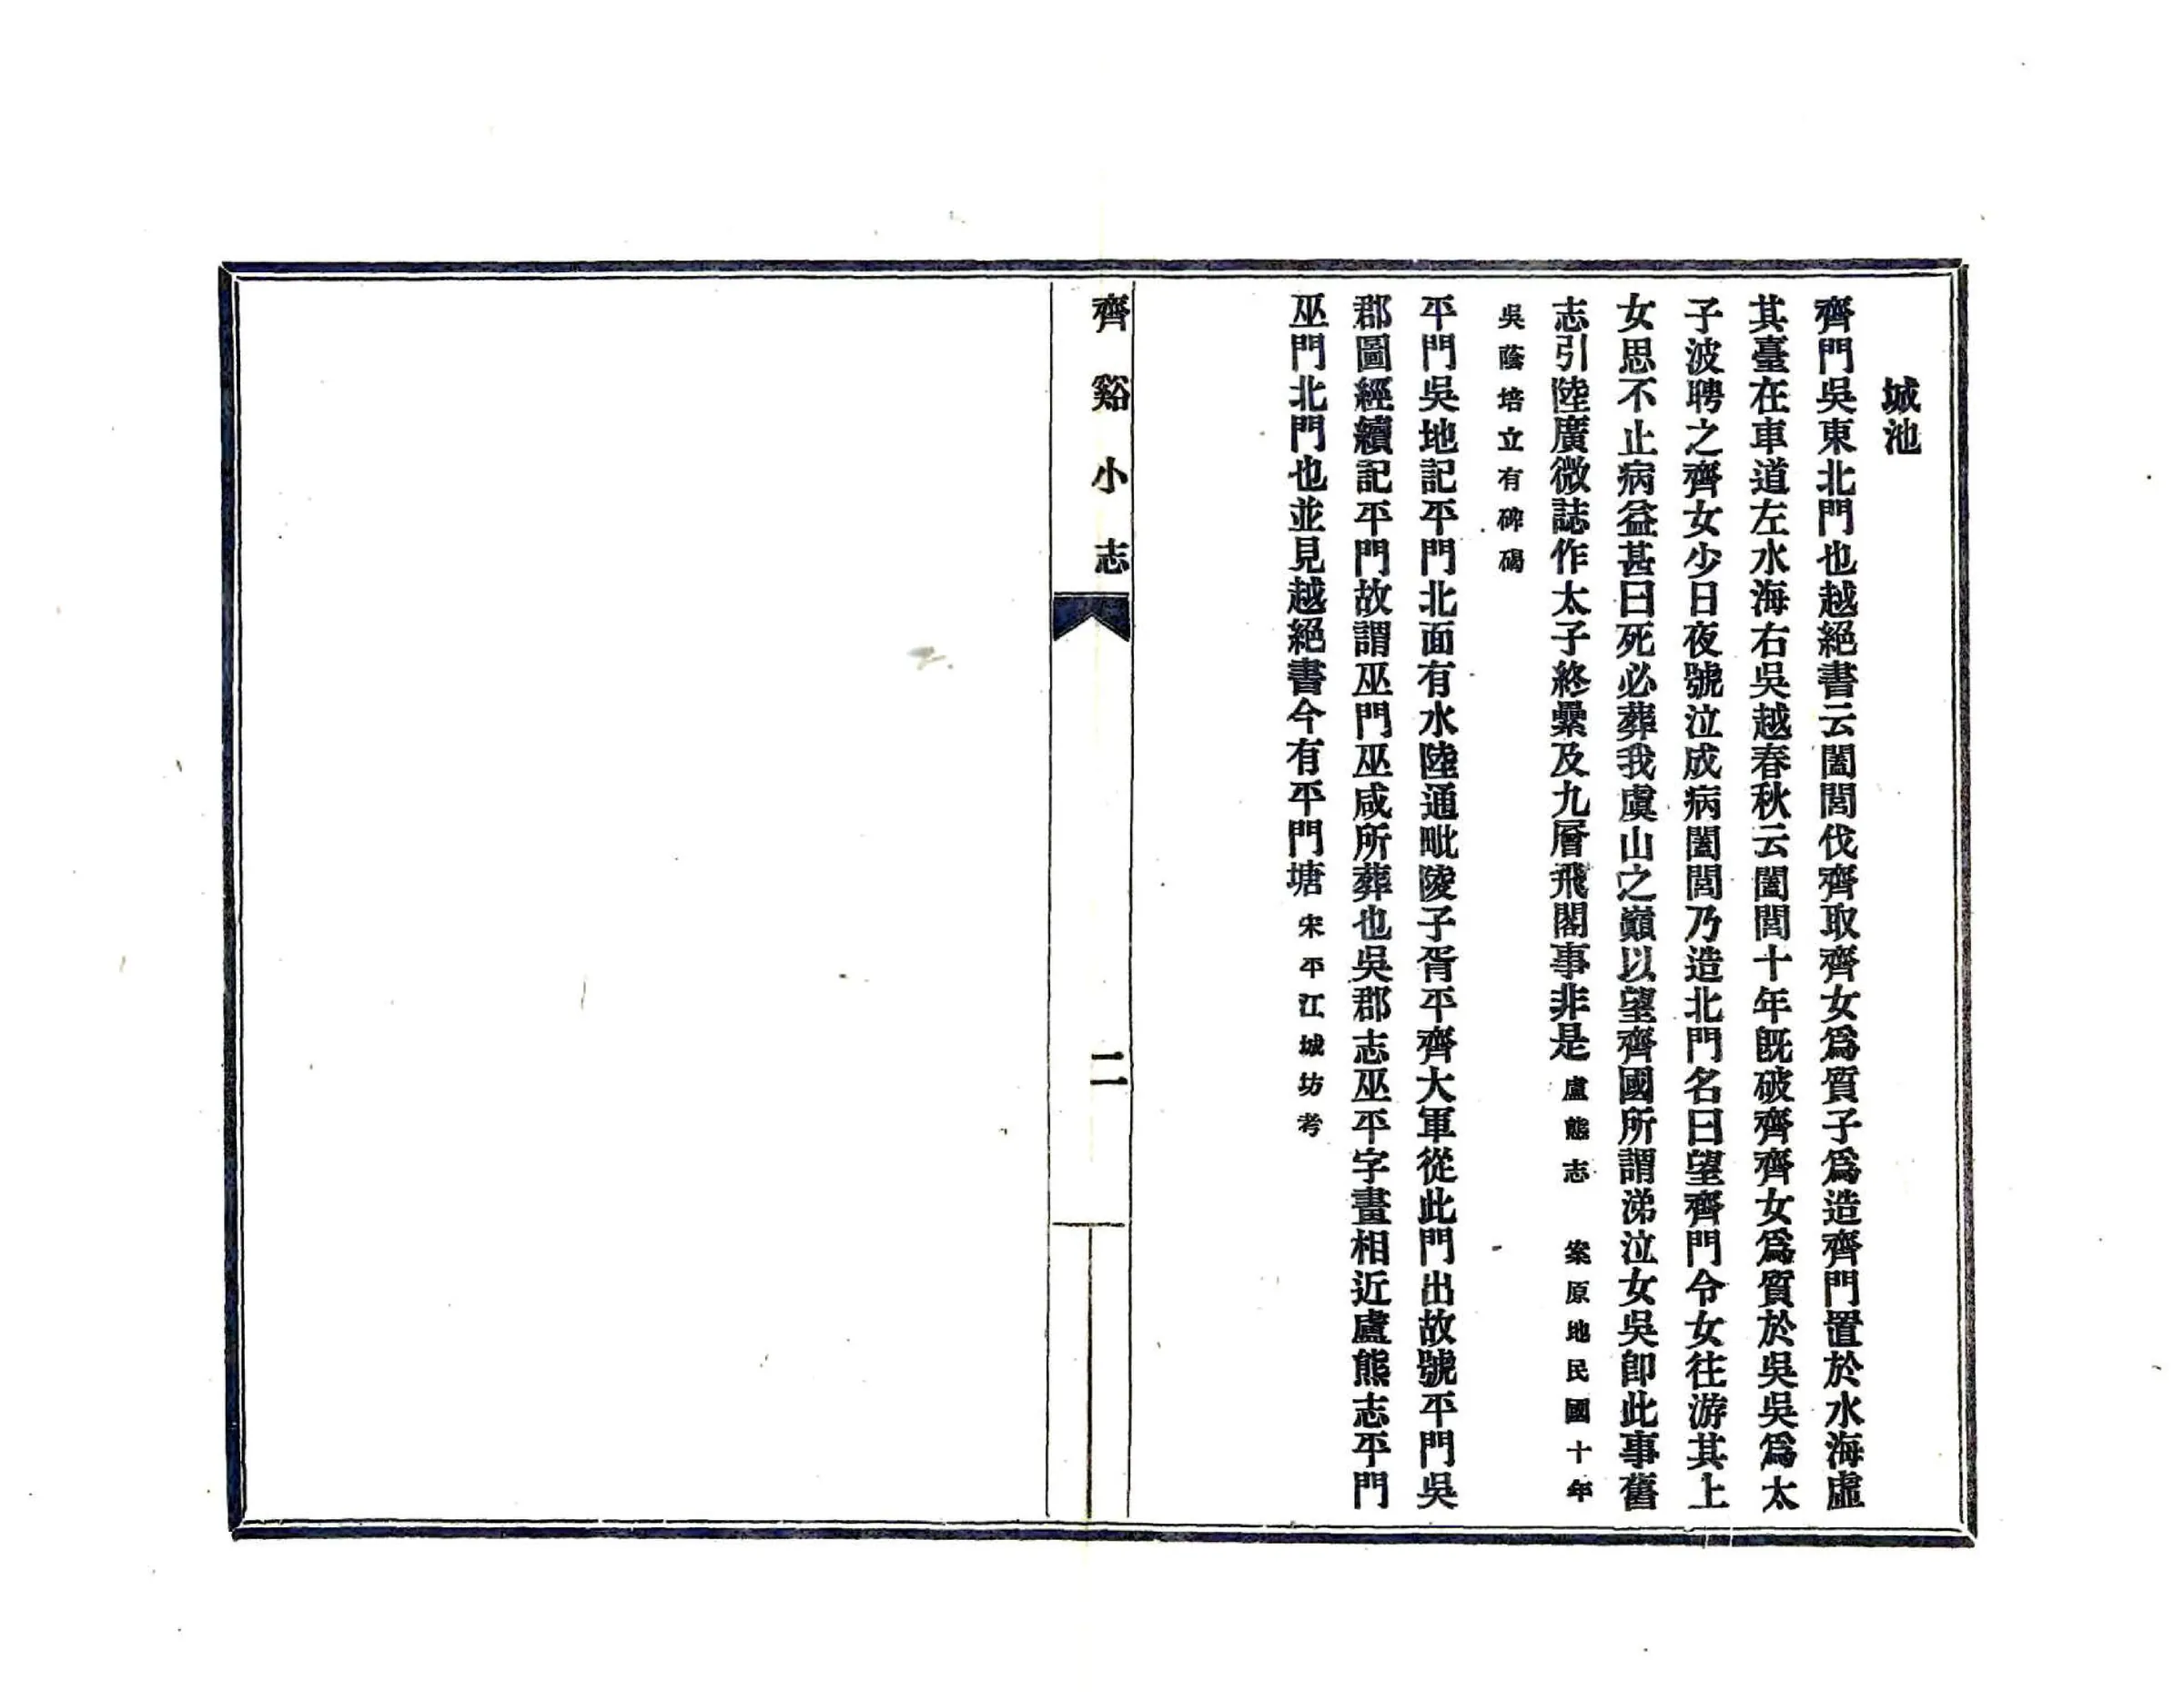 城池
齊門吳東北門也越絕書云闔閭伐齊取齊女爲質子爲造齊門置於水海虛
其臺在車道左水海右吳越春秋云闔閭十年既破齊齊女爲質於吳吳爲太
子波聘之齊女少日夜號泣成病闔閭乃造北門名曰望齊門令女往游其上
女思不止病益甚曰死必葬我虞山之巔以望齊國所謂涕泣女吳卽此事舊
志引陸廣微誌作太子終纍及九層飛閣事非是盧態志 案原地民國十年
吳蔭培立有碑碣
平門吳地記平門北面有水陸通毗陵子胥平齊大軍從此門出故號平門吳
郡圖經續記平門故謂巫門巫咸所葬也吳郡志巫平字畫相近盧熊志平門
巫門北門也並見越絕書今有平門塘宋平江城坊考
齊谿小志
二